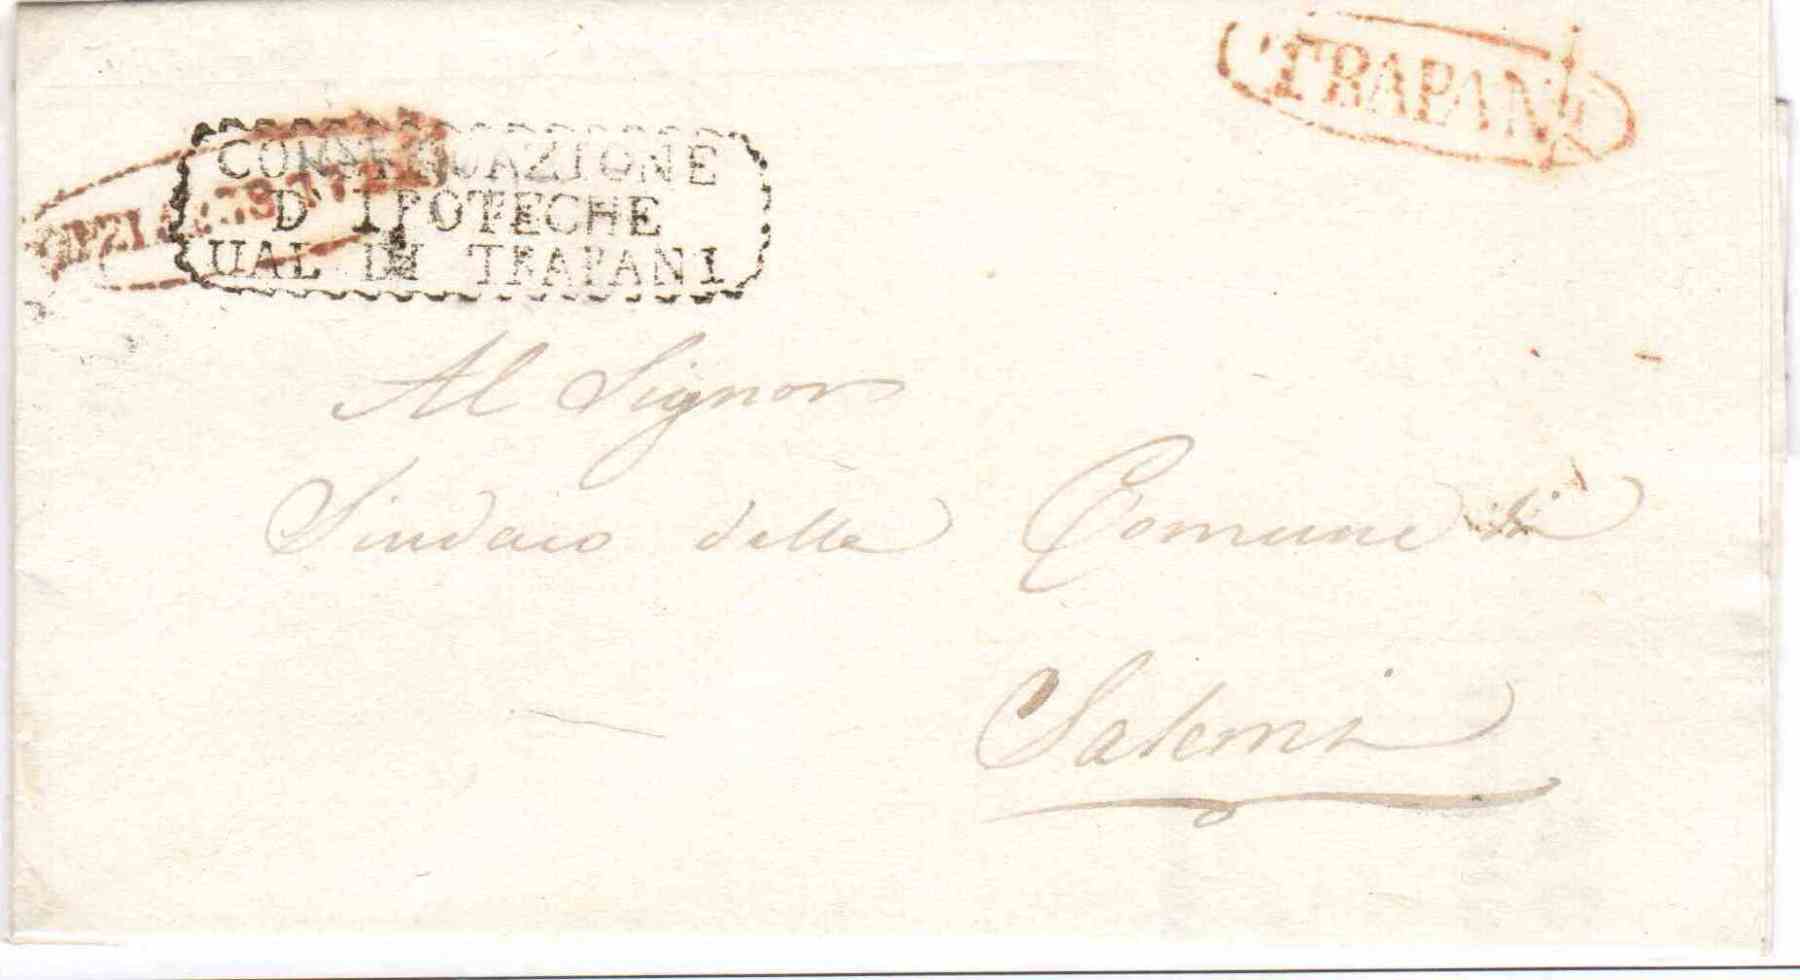 TRAPANI
CONSERVAZIONE
D' IPOTECHE
VAL DI TRAPANI
Al Signor
Sindaco della Comune di
Salemi